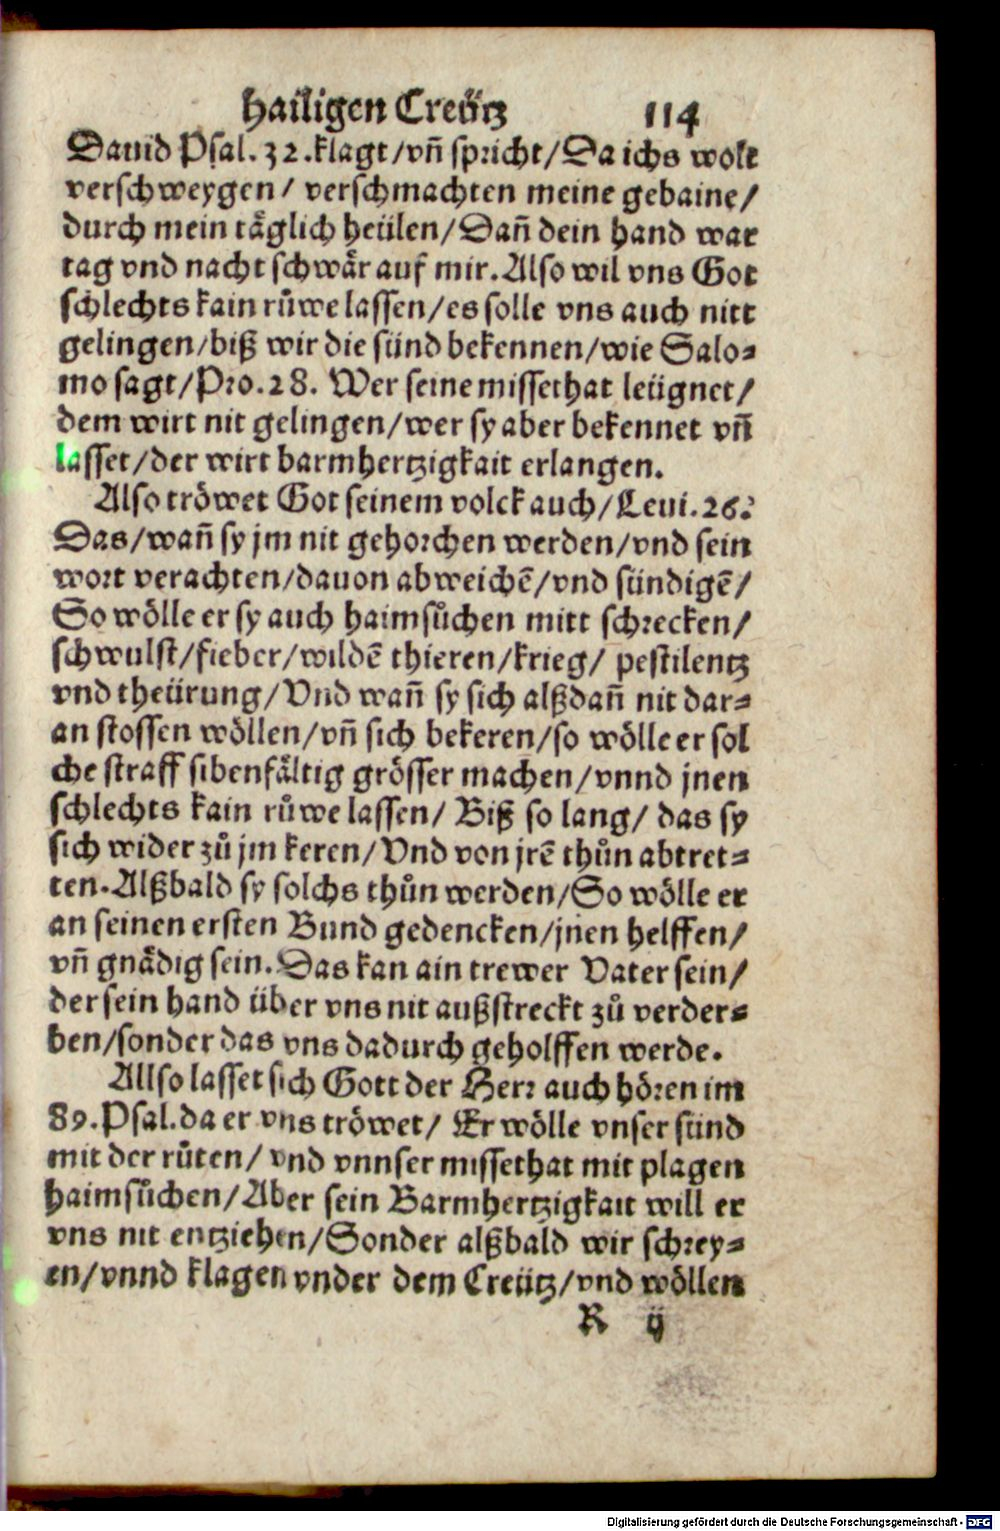 hailigen Creütz 114
Dauid Psal. 32. klagt/vñ spricht/Da ichs wolt
verschweygen/ verschmachten meine gebaine/
durch mein täglich heülen/Dañ dein hand war
tag vnd nacht schwär auf mir. Also wil vns Got
schlechts kain růwe lassen/es solle vns auch nitt
gelingen/biß wir die sünd bekennen/wie Salo⸗
mo sagt/Pro. 28. Wer seine missethat leügnet/
dem wirt nit gelingen/wer sy aber bekennet vñ
lasset/der wirt barmhertzigkait erlangen.
Also tröwet Got seinem volck auch/Leui. 26.
Das/wañ sy jm nit gehorchen werden/vnd sein
wort verachten/dauon abweichē/vnd sündigē/
So wölle er sy auch haimsůchen mitt schrecken/
schwulst/fieber/wildē thieren/krieg/ pestilentz
vnd theürung/Vnd wañ sy sich alßdañ nit dar⸗
an stossen wöllen/vñ sich bekeren/so wölle er sol
che straff sibenfältig grösser machen/vnnd jnen
schlechts kain růwe lassen/ Biß so lang/ das sy
sich wider zů jm keren/Vnd von jrē thůn abtret⸗
ten. Alßbald sy solchs thůn werden/So wölle er
an seinen ersten Bund gedencken/jnen helffen/
vñ gnädig sein. Das kan ain trewer Vater sein/
der sein hand über vns nit außstreckt zů verder⸗
ben/sonder das vns dadurch geholffen werde.
Allso lasset sich Gott der Herr auch hören im
89. Psal. da er vns tröwet/ Er wölle vnser sünd
mit der růten/ vnd vnnser missethat mit plagen
haimsůchen/Aber sein Barmhertzigkait will er
vns nit entziehen/Sonder alßbald wir schrey⸗
en/vnnd klagen vnder dem Creütz/vnd wöllen
R ij
Digitalisierung gefördert durch die Deutsche Forschungsgemeinschaft - DFG